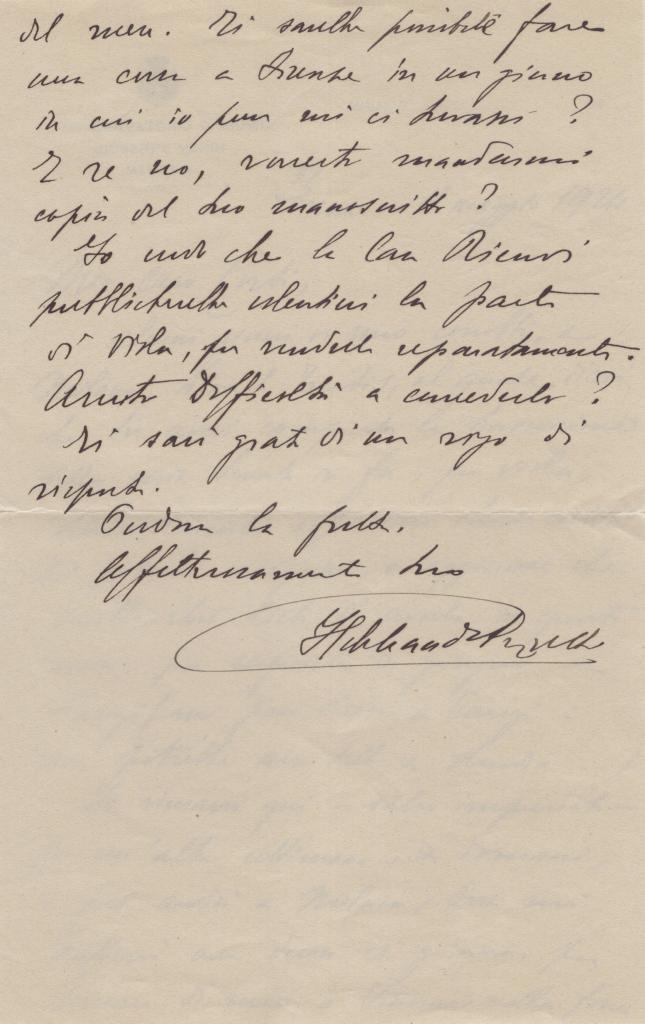 del mese. Ti sarebbe possibile fare
una corsa a Firenze in un giorno
in cui io pure mi ci trovassi?
E se no, vorresti mandarmi
copia del tuo manoscritto?
Io credo che la Casa Ricordi
pubblicherebbe volentieri la parte
di Viola, per venderla separatamente.
Avresti difficoltà a concederla?
Ti sarò grato di un rigo di
risposta.
Perdona la fretta.
Affettuosamente tuo
Ildebrando Pizzetti